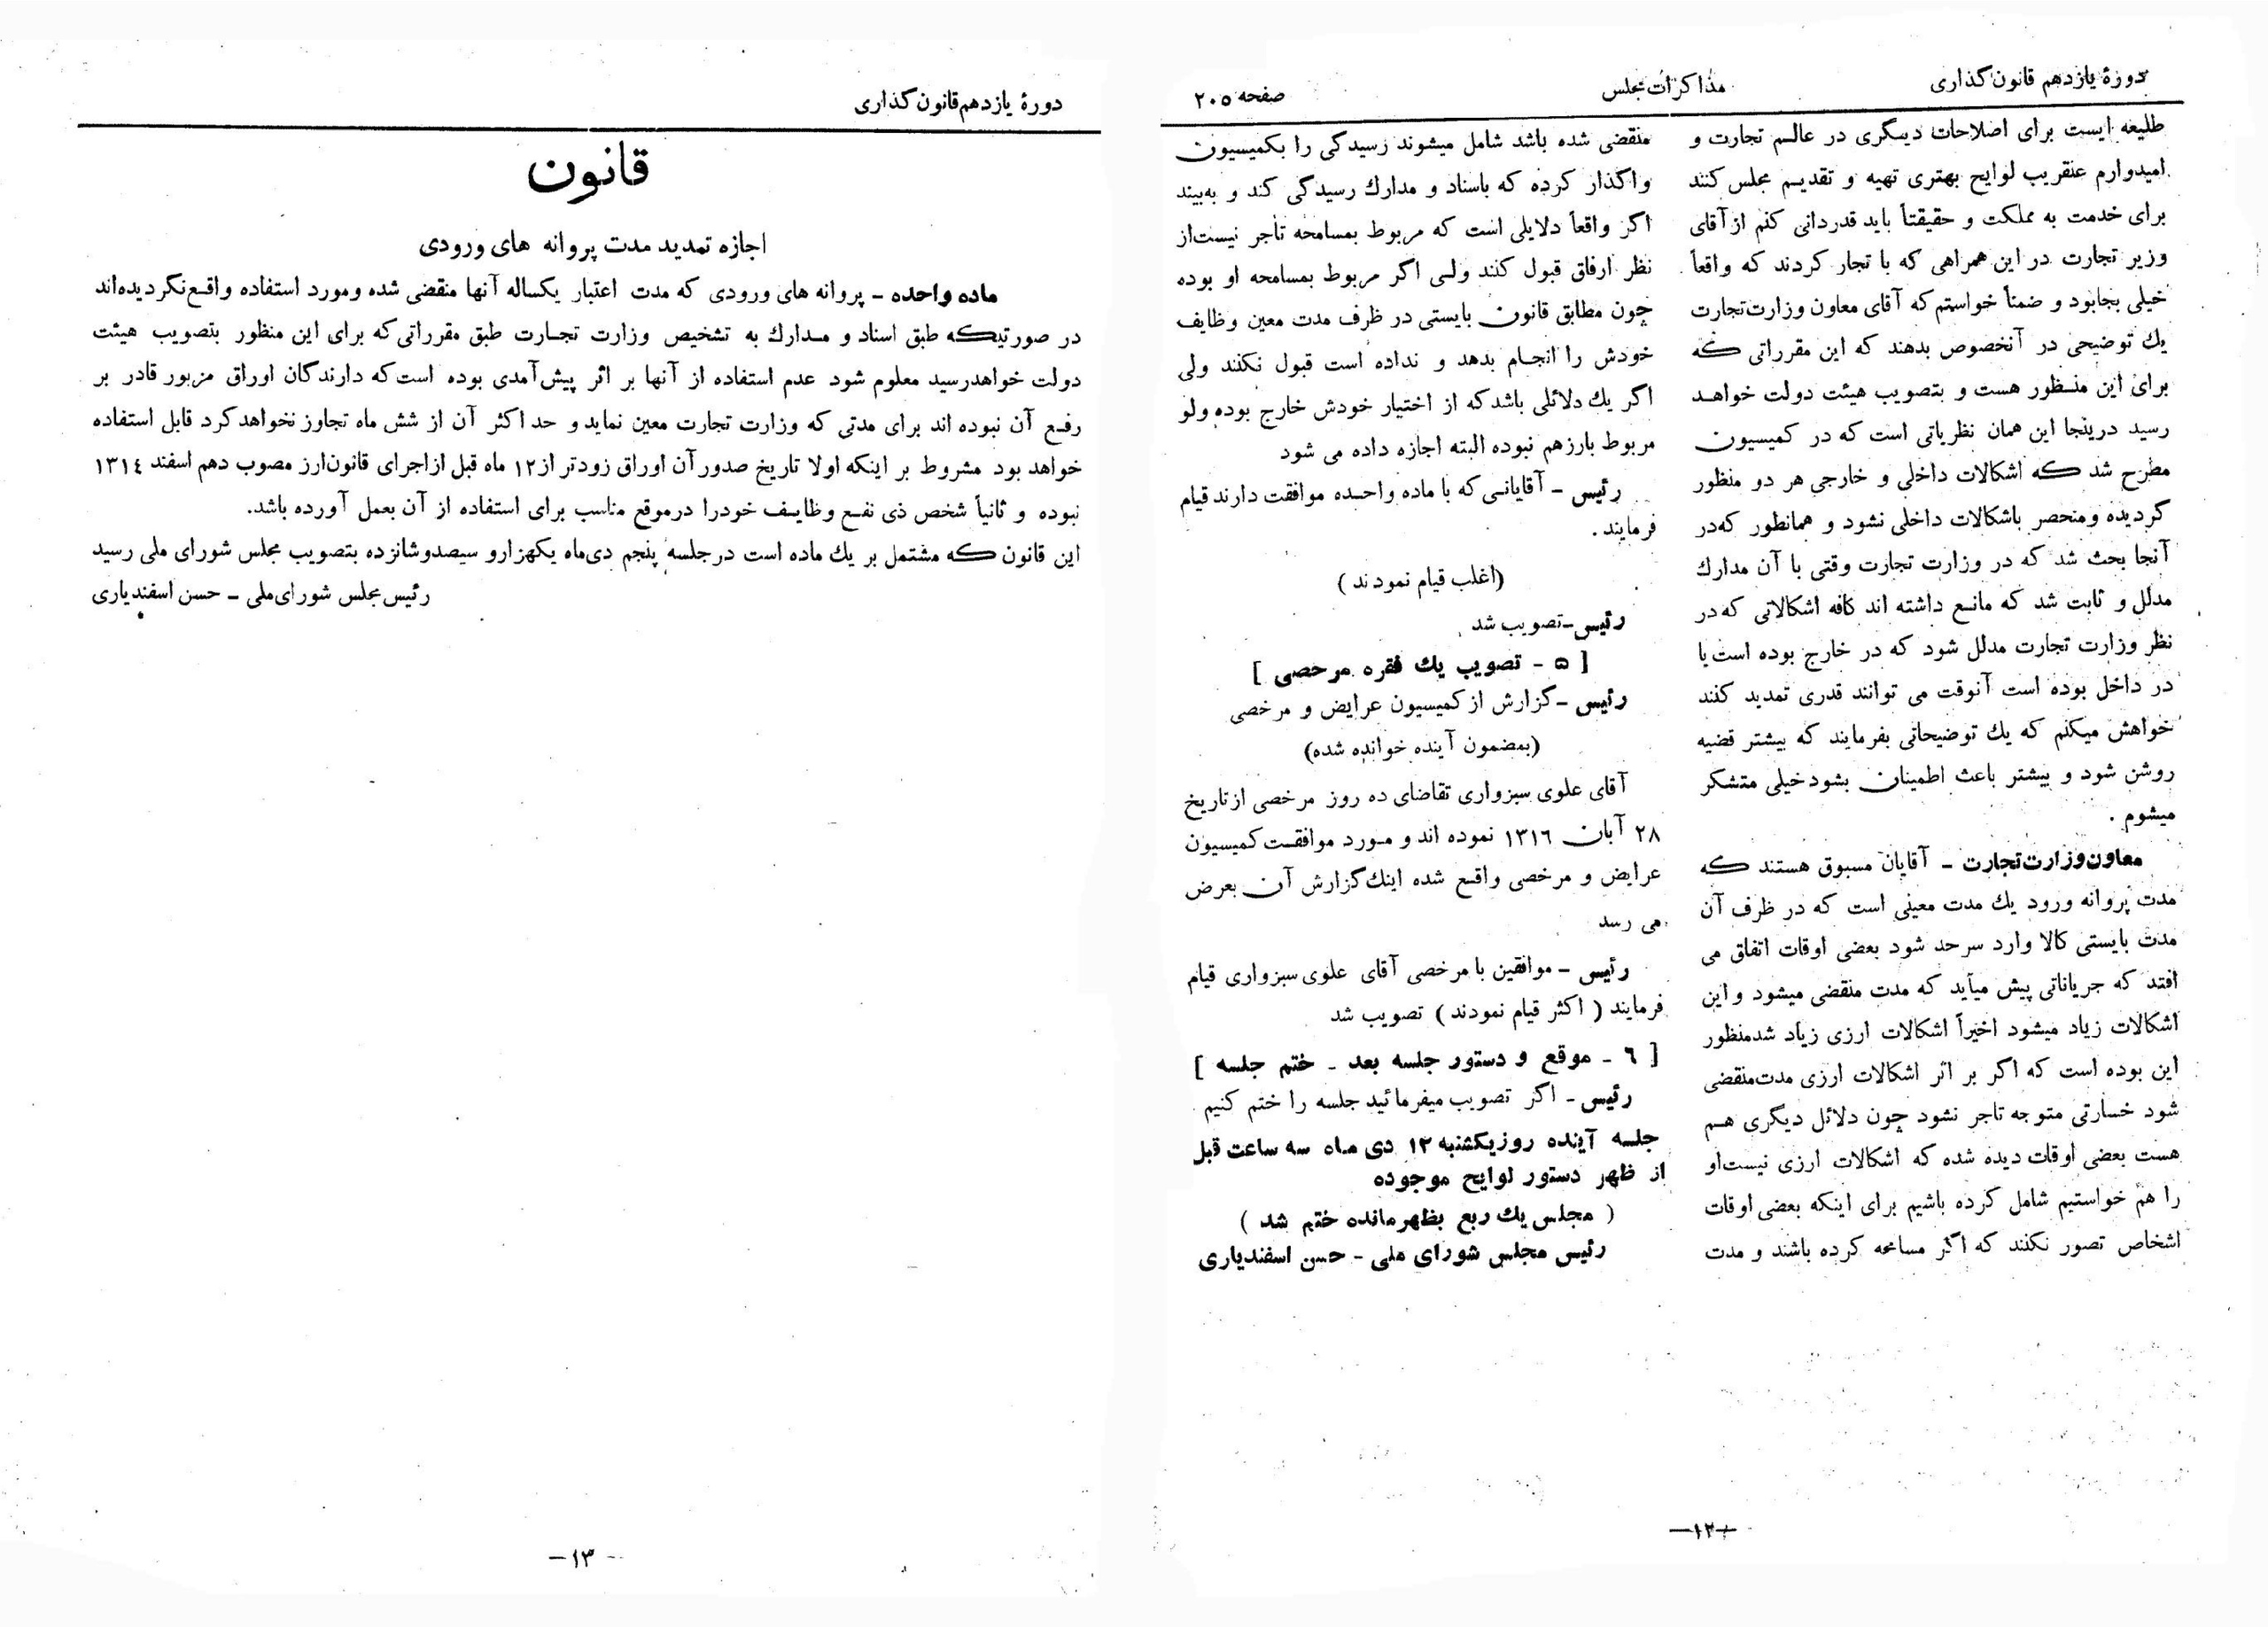 دورهٔ یازدهم قانون‌گذاری
مذاکرات مجلس
صفحه ۲۰۵
طلیعه ایست برای اصلاحات دیگری در عالم تجارت و
امیدوارم عنقریب لوایح بهتری تهیه و تقدیم مجلس کنند
برای خدمت به مملکت و حقیقتاً باید قدردانی کنم از آقای
وزیر تجارت در این همراهی که با تجار کردند که واقعاً
خیلی بجا بود و ضمناً خواستم که آقای معاون وزارت تجارت
یك توضیحی در آنخصوص بدهند که این مقرراتی که
برای این منظور هست و بتصویب هیئت دولت خواهد
رسید در اینجا این همان نظریاتی است که در کمیسیون
مطرح شد که اشکالات داخلی و خارجی هر دو منظور
گردیده و منحصر باشکالات داخلی نشود و همانطور که در
آنجا بحث شد که در وزارت تجارت وقتی با آن مدارك
مدلل و ثابت شد که مانع داشته اند کافه اشکالاتی که در
نظر وزارت تجارت مدلل شود که در خارج بوده است یا
در داخل بوده است آنوقت می توانند قدری تمدید کنند
خواهش میکنم که یك توضیحاتی بفرمایند که بیشتر قضیه
روشن شود و بیشتر باعث اطمینان بشود خیلی متشکر
میشوم .
معاون وزارت تجارت ـ آقایان مسبوق هستند که
مدت پروانه ورود یك مدت معینی است که در ظرف آن
مدت بایستی کالا وارد سرحد شود بعضی اوقات اتفاق می
افتد که جریاناتی پیش میآید که مدت منقضی میشود و این
اشکالات زیاد میشود اخیراً اشکالات ارزی زیاد شد منظور
این بوده است که اگر بر اثر اشکالات ارزی مدت منقضی
شود خسارتی متوجه تاجر نشود چون دلائل دیگری هم
هست بعضی اوقات دیده شده که اشکالات ارزی نیست او
را هم خواستیم شامل کرده باشیم برای اینکه بعضی اوقات
اشخاص تصور نکنند که اگر مسامحه کرده باشند و مدت
منقضی شده باشد شامل میشوند رسیدگی را بکمیسیون
واگذار کرده که باسناد و مدارك رسیدگی کند و به‌بیند
اگر واقعاً دلایلی است که مربوط بمسامحه تاجر نیست از
نظر ارفاق قبول کنند ولی اگر مربوط بمسامحه او بوده
چون مطابق قانون بایستی در ظرف مدت معین وظایف
خودش را انجام بدهد و نداده است قبول نکنند ولی
اگر یك دلائلی باشد که از اختیار خودش خارج بوده ولو
مربوط بارز هم نبوده البته اجازه داده می شود
رئیس ـ آقایانی که با ماده واحده موافقت دارند قیام
فرمایند .
(اغلب قیام نمودند )
رئیس ـ تصویب شد
[ ۵ - تصویب یك فقره مرخصی ]
رئیس ـ گزارش از کمیسیون عرایض و مرخصی
(بمضمون آینده خوانده شده)
آقای علوی سبزواری تقاضای ده روز مرخصی از تاریخ
۲۸ آبان ۱۳۱۶ نموده اند و مورد موافقت کمیسیون
عرایض و مرخصی واقع شده اینك گزارش آن بعرض
می رسد
رئیس ـ موافقین با مرخصی آقای علوی سبزواری قیام
فرمایند ( اکثر قیام نمودند ) تصویب شد
[ ۶ ـ موقع و دستور جلسه بعد ـ ختم جلسه ]
رئیس ـ اگر تصویب میفرمائید جلسه را ختم کنیم
جلسه آینده روز یکشنبه ۱۲ دی ماه سه ساعت قبل
از ظهر دستور لوایح موجوده
( مجلس یك ربع بظهر مانده ختم شد )
رئیس مجلس شورای ملی - حسن اسفندیاری
ـ۱۲ـ
دورهٔ یازدهم قانون‌گذاری
قانون
اجازه تمدید مدت پروانه های ورودی
ماده واحده ـ پروانه های ورودی که مدت اعتبار یکساله آنها منقضی شده و مورد استفاده واقع نگردیده‌اند
در صورتیکه طبق اسناد و مدارك به تشخیص وزارت تجارت طبق مقرراتی که برای این منظور بتصویب هیئت
دولت خواهد رسید معلوم شود عدم استفاده از آنها بر اثر پیش‌آمدی بوده است که دارندگان اوراق مزبور قادر بر
رفع آن نبوده اند برای مدتی که وزارت تجارت معین نماید و حد اکثر آن از شش ماه تجاوز نخواهد کرد قابل استفاده
خواهد بود مشروط بر اینکه اولا تاریخ صدور آن اوراق زودتر از ۱۲ ماه قبل از اجرای قانون ارز مصوب دهم اسفند ۱۳۱٤
نبوده و ثانیاً شخص ذی نفع وظایف خود را در موقع مناسب برای استفاده از آن بعمل آورده باشد.
این قانون که مشتمل بر یك ماده است در جلسه پنجم دی‌ماه یکهزار و سیصد و شانزده بتصویب مجلس شورای ملی رسید
رئیس مجلس شورای ملی ـ حسن اسفندیاری
ـ۱۳ـ